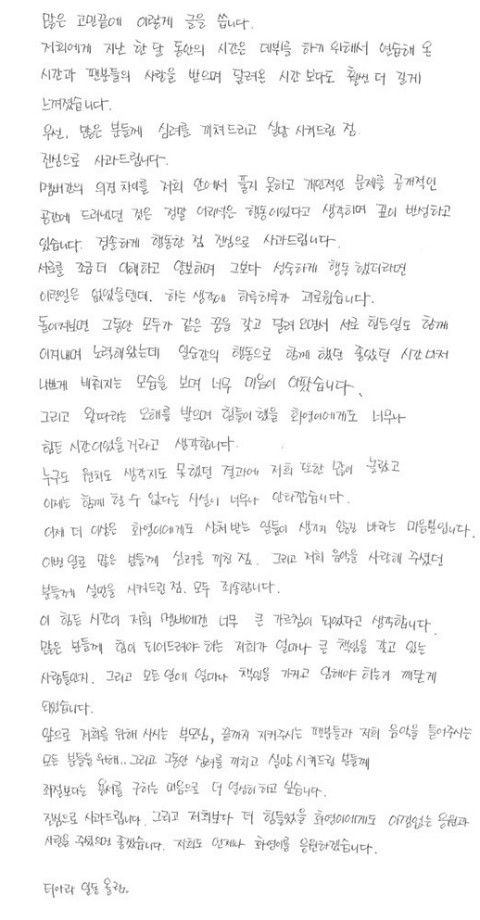 많은 고민끝에 이렇게 글을 씁니다.
저희에게 지난 한 달 동안의 시간은 데뷔를 하기 위해서 연습해 온
시간과 팬분들의 사랑을 받으며 달려온 시간 보다도 훨씬 더 길게
느껴졌습니다.
우선, 많은 분들께 심려를 끼쳐드리고 실망 시켜드린 점
진심으로 사과드립니다.
멤버간의 의견 차이를 저희 안에서 풀지 못하고 개인적인 문제를 공개적인
공간에 드러냈던 것은 정말 어리석은 행동이었다고 생각하며 깊이 반성하고
있습니다. 경솔하게 행동한 점 진심으로 사과드립니다.
서로를 조금 더 이해하고 양보하며 그보다 성숙하게 행동 했더라면
이런일은 없었을텐데. 하는 생각에 하루하루가 괴로웠습니다.
돌이켜보면 그동안 모두가 같은 꿈을 갖고 달려 오면서 서로 힘든일도 함께
이겨내며 노력해왔는데 일순간의 행동으로 함께 했던 좋았던 시간마저
나쁘게 비춰지는 모습을 보며 너무 마음이 아팠습니다.
그리고 왕따라는 오해를 받으며 힘들어 했을 화영이에게도 너무나
힘든 시간이었을거라고 생각합니다.
누구도 원치도 생각지도 못했던 결과에 저희 또한 많이 놀랐고
이제는 함께 할 수 없다는 사실이 너무나 안타깝습니다.
이제 더 이상은 화영이에게도 상처 받는 일들이 생기지 않길 바라는 마음뿐입니다.
이번 일로 많은 분들께 심려를 끼친 점. 그리고 저희 음악을 사랑해 주셨던
분들께 실망을 시켜드린 점. 모두 죄송합니다.
이 힘든 시간이 저희 멤버에겐 너무 큰 가르침이 되었다고 생각합니다.
많은 분들께 힘이 되어드려야 하는 저희가 얼마나 큰 책임을 갖고 있는
사람들인지. 그리고 모든 일에 얼마나 책임을 가지고 임해야 하는지 깨닫게
되었습니다.
앞으로 저희를 위해 사시는 부모님, 끝까지 지켜주시는 팬분들과 저희 음악을 들어주시는
모든 분들을 위해.. 그리고 그동안 심려를 끼치고 실망 시켜드린 분들께
좌절보다는 용서를 구하는 마음으로 더 열심히 하고 싶습니다.
진심으로 사과드립니다. 그리고 저희보다 더 힘들었을 화영이에게도 아낌없는 응원과
사랑을 주셨으면 좋겠습니다. 저희도 언제나 화영이를 응원하겠습니다.
티아라 일동 올림.